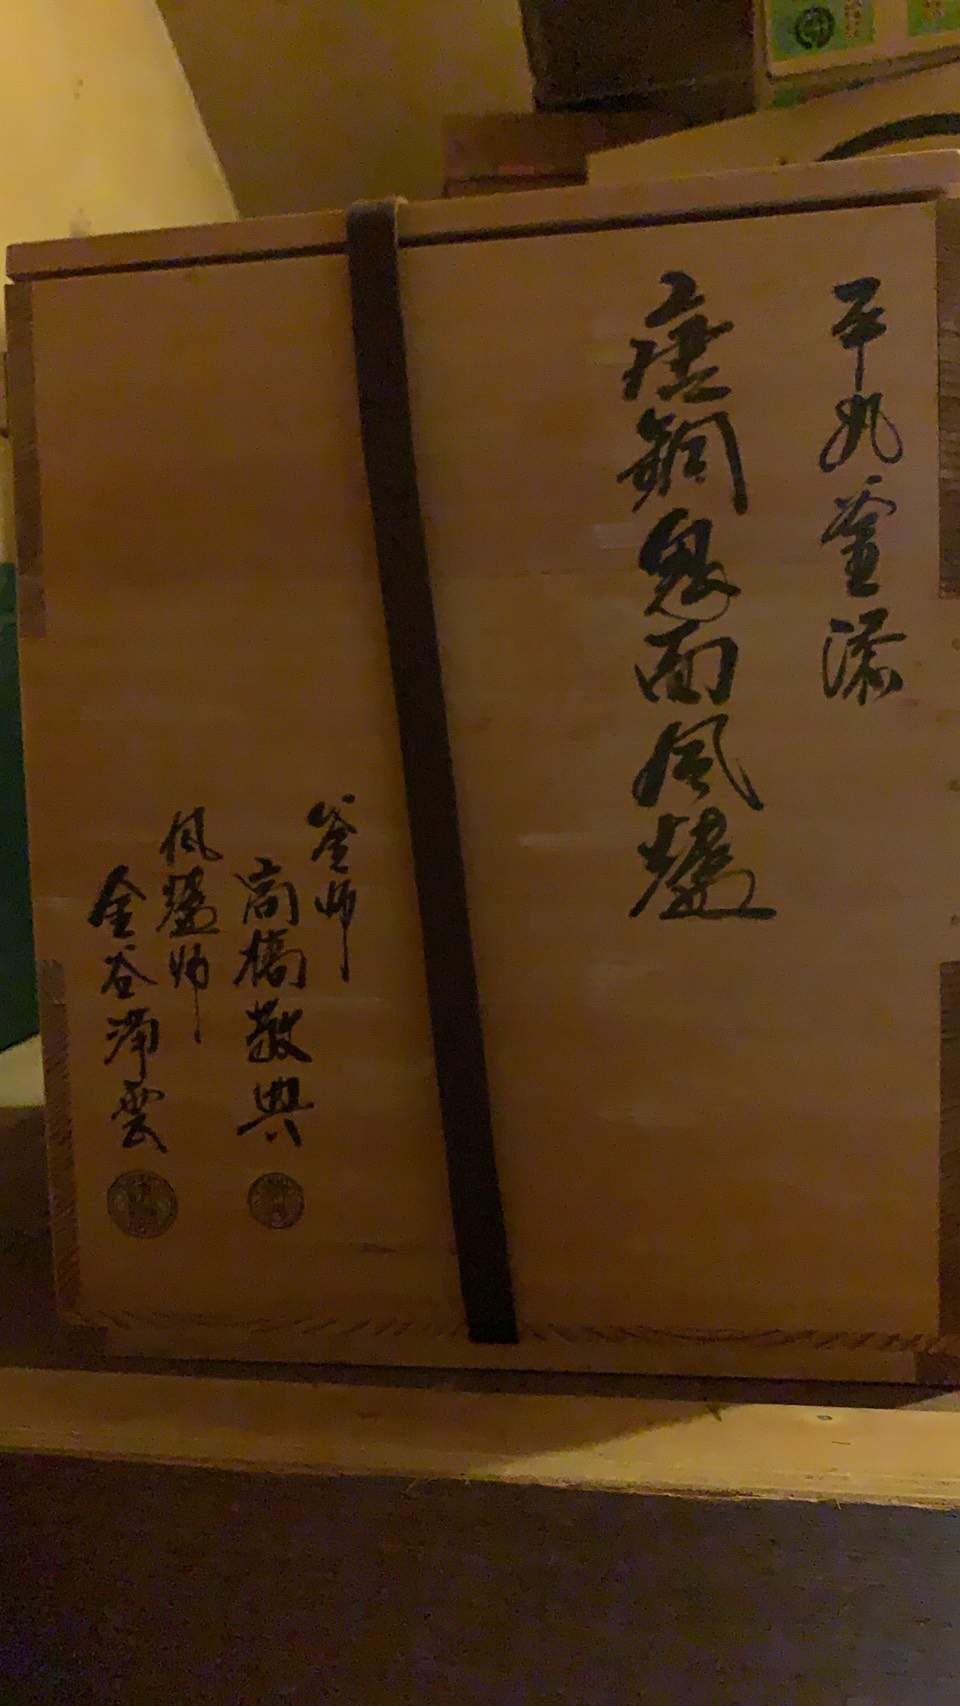 平丸釜添
唐銅鬼面風爐
釜師
高橋敬典
風爐師
金谷浄雲